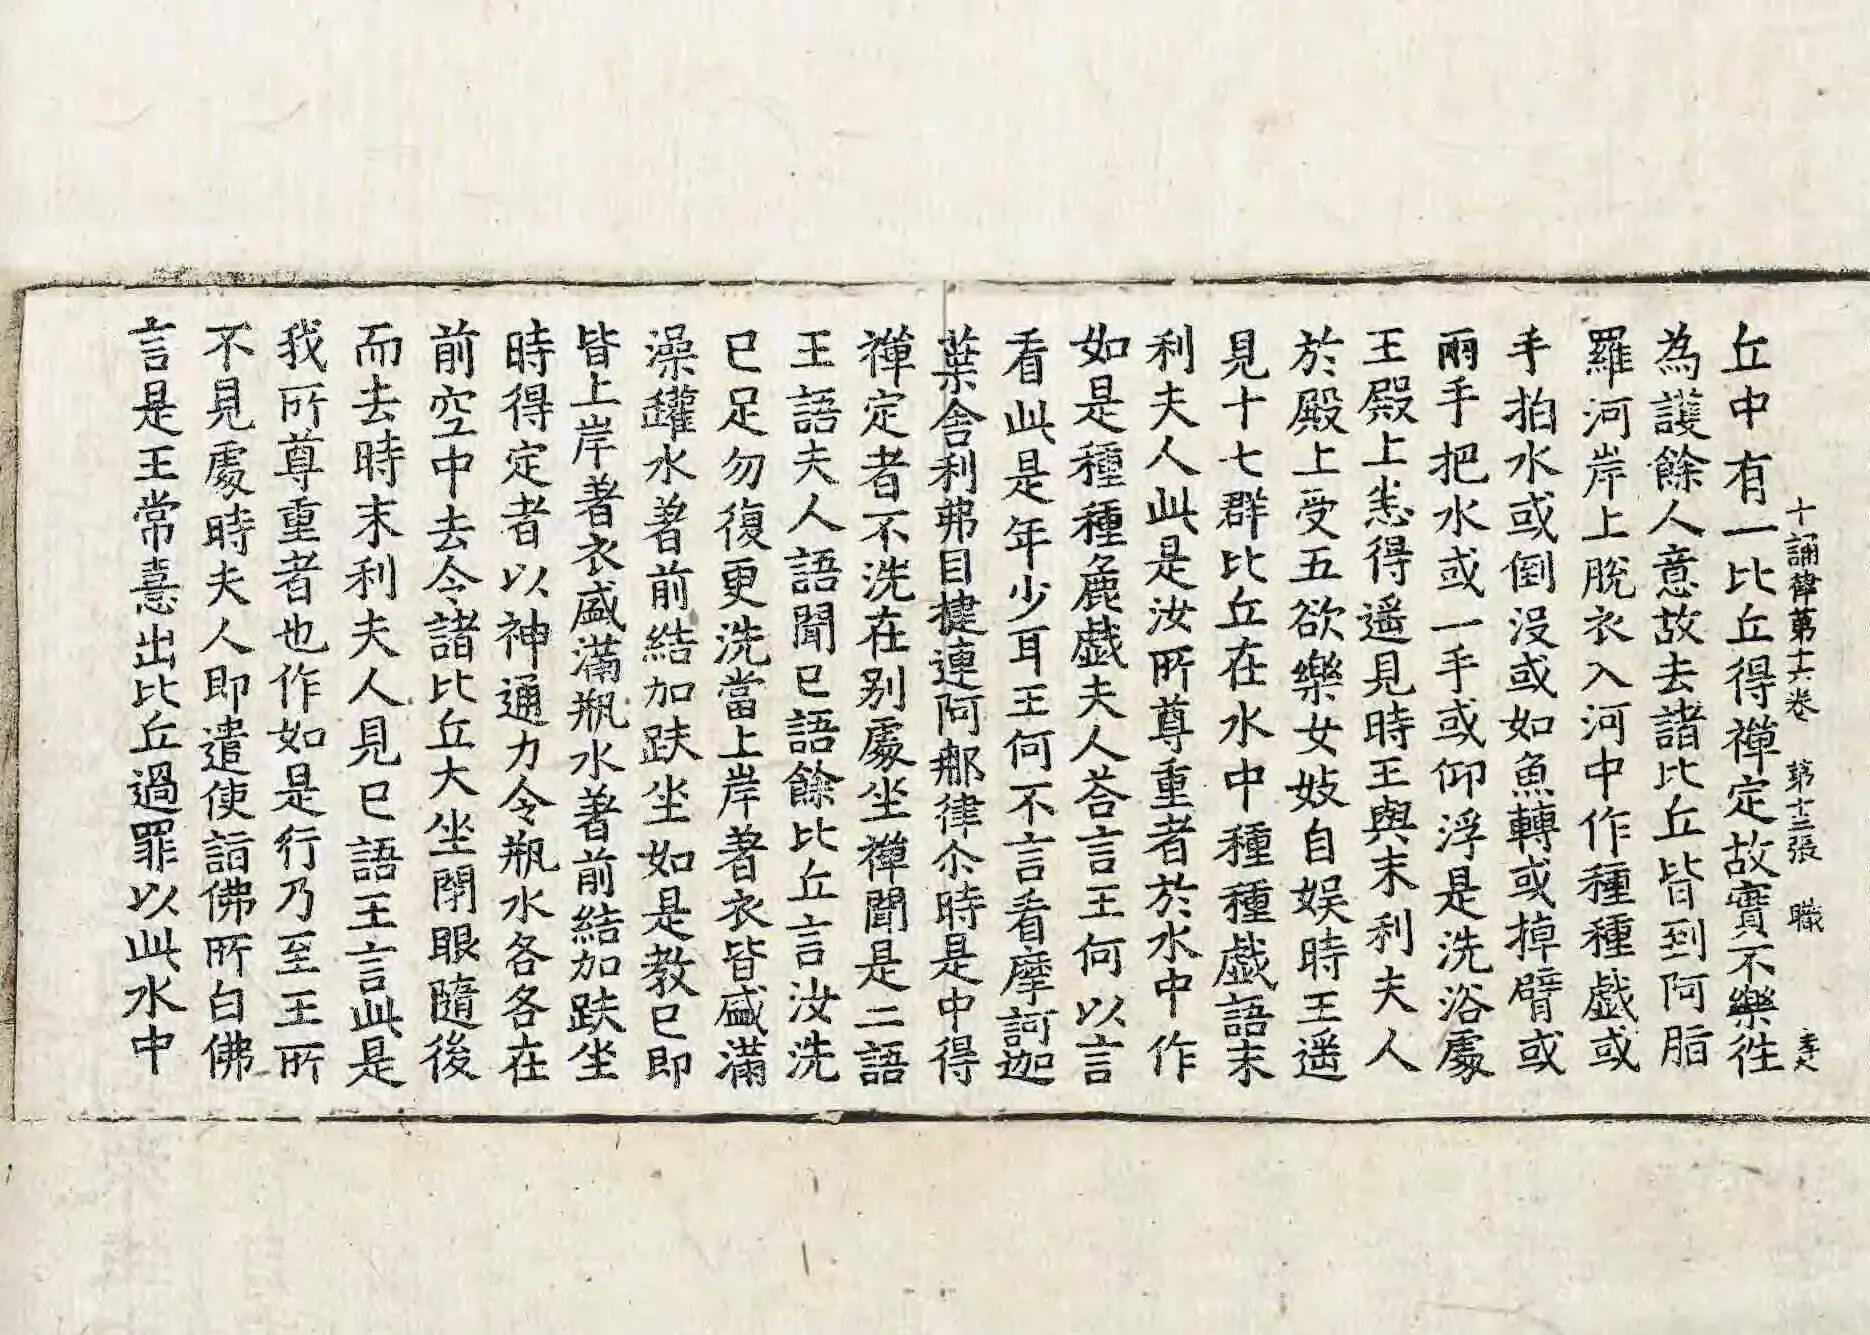 十誦律第十六卷 第十三張 職
丘中有一比丘得禪定故實不樂往
為護餘人意故去諸比丘皆到阿脂
羅河岸上脫衣入河中作種種戲或
手拍水或倒沒或如魚轉或掉臂或
兩手把水或一手或仰浮是洗浴處
王殿上悉得遥見時王與末利夫人
於殿上受五欲樂女妓自娱時王遥
見十七群比丘在水中種種戲語末
利夫人此是汝所尊重者於水中作
如是種種麁戲夫人荅言王何以言
看此是年少耳王何不言看摩訶迦
葉舍利弗目揵連阿那律尒時是中得
禪定者不洗在别處坐禪聞是二語
王語夫人語聞已語餘比丘言汝洗
已足勿復更洗當上岸著衣皆盛滿
澡罐水著前結加趺坐如是教已即
皆上岸著衣盛滿瓶水著前結加趺坐
時得定者以神通力令瓶水各各在
前空中去令諸比丘大坐閉眼隨後
而去時末利夫人見已語王言此是
我所尊重者也作如是行乃至王所
不見處時夫人即遣使詣佛所白佛
言是王常憙出比丘過罪以此水中